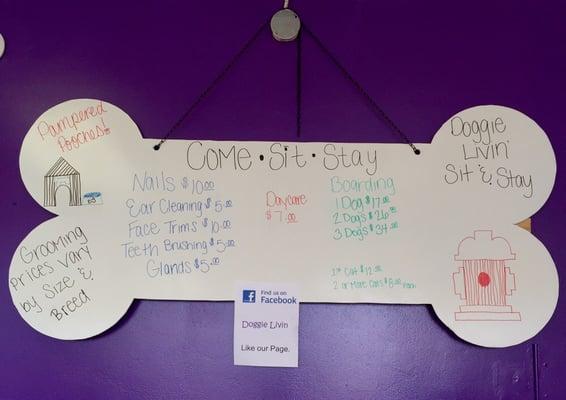 Pampered
Pooches!
Grooming
Prices vary
by Size &
Breed
Come • Sit • Stay
Nails $10.00
Ear Cleaning $5.00
Face Trims $10.00
Teeth Brushing $5.00
Glands $5.00
Daycare
$7.00
Boarding
1 Dog $17.00
2 Dogs $26.00
3 Dogs $34.00
1st Cat $12.00
2 or More Cats $8.00 each
Doggie
Livin'
Sit & Stay
Find us on
Facebook
Doggie Livin
Like our Page.